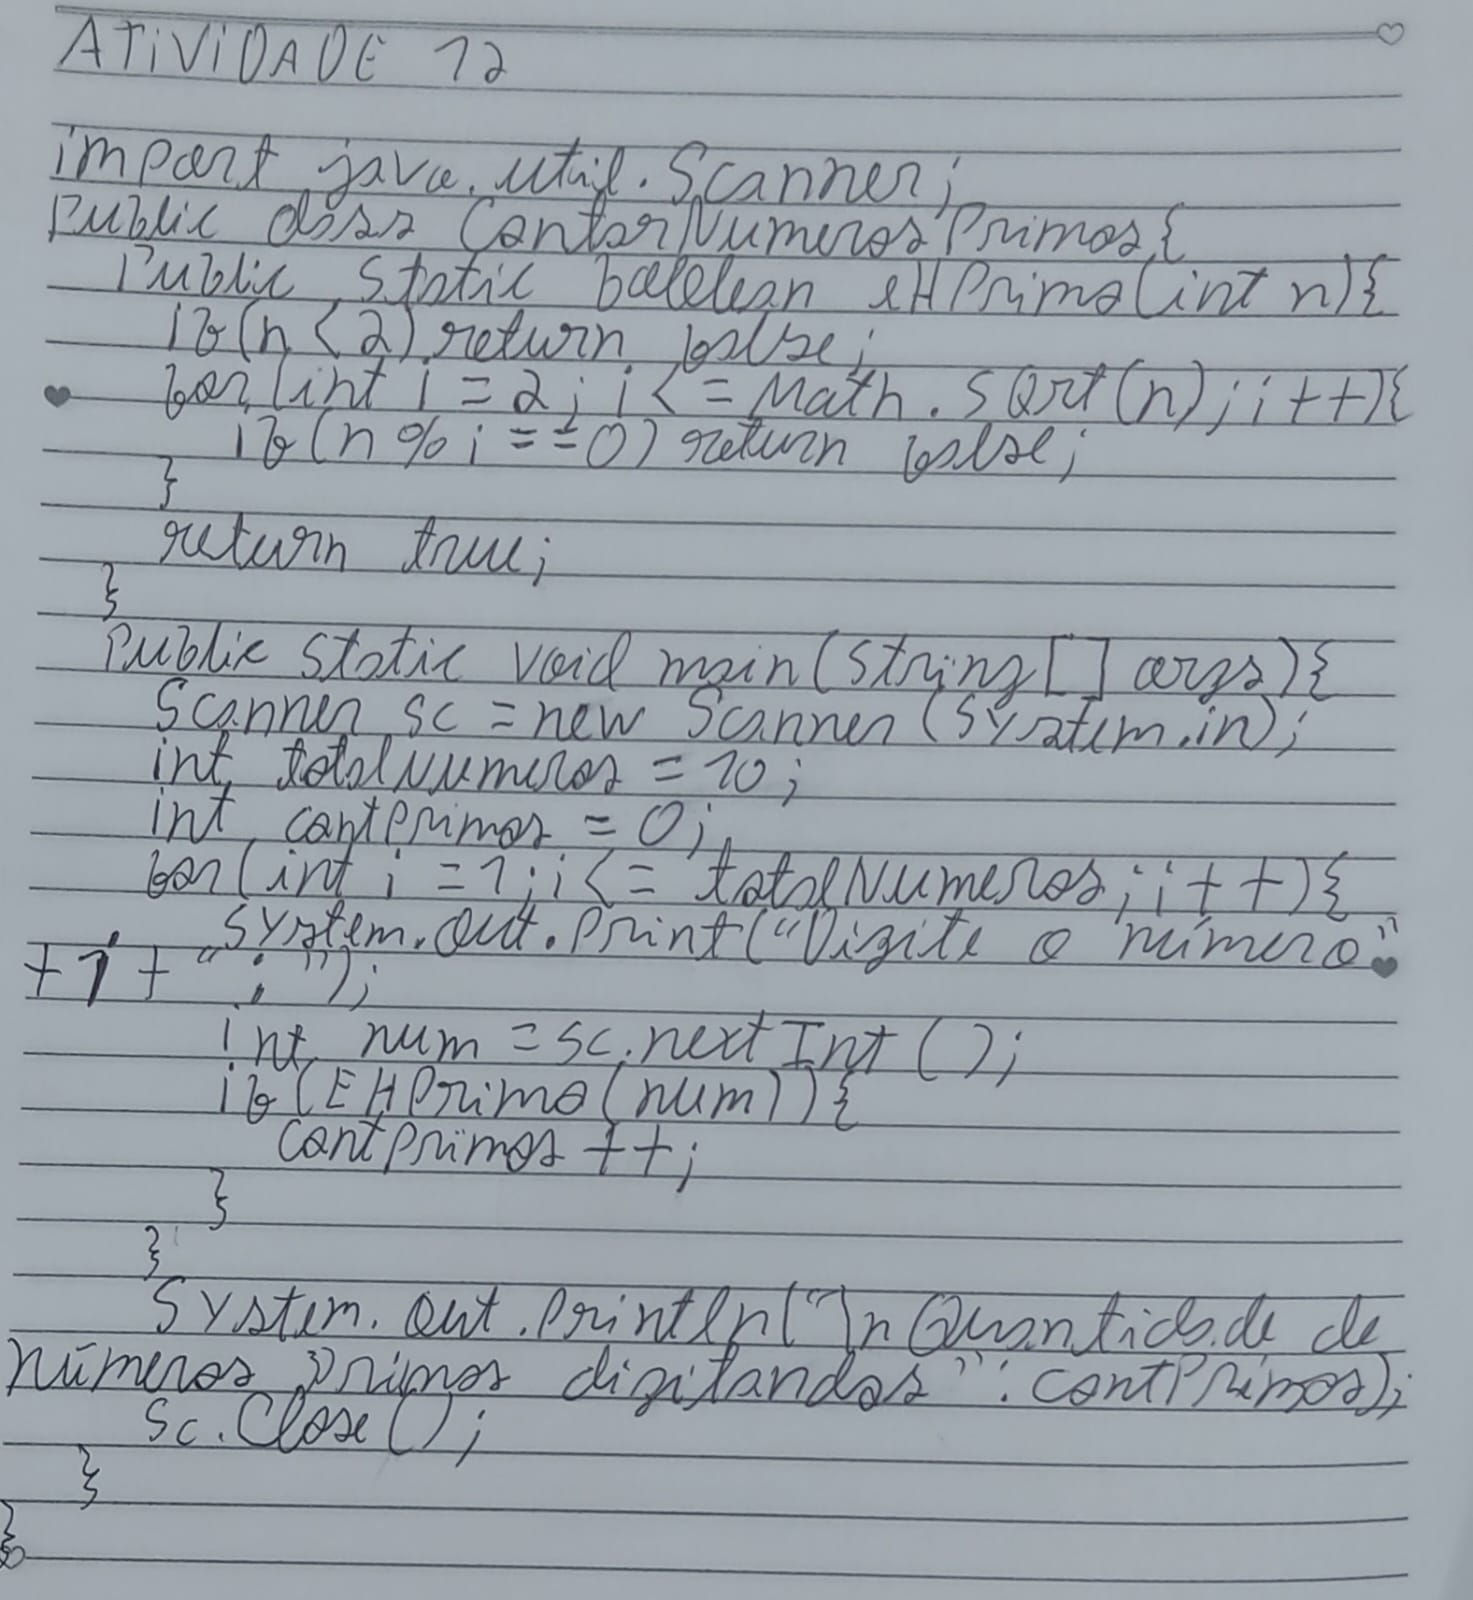 ATIVIDADE 12
import java.util.Scanner;
Public class ContarNumerosPrimos{
Public static boolelean eHPrimo(int n){
if(n < 2) return false;
for(int i = 2; i <= Math.sqrt(n); i++){
if(n % i == 0) return false;
}
return true;
}
Public static void main(String[] args){
Scanner sc = new Scanner(System.in);
int totalNumeros = 10;
int contPrimos = 0;
for(int i = 1; i <= totalNumeros; i++){
System.out.print("Digite o número"
+ i + ": ");
int num = sc.nextInt();
if(EHPrimo(num)){
contPrimos++;
}
}
System.out.println("\nQuantidade de
números primos digitandos": contPrimos);
sc.Close();
}
}